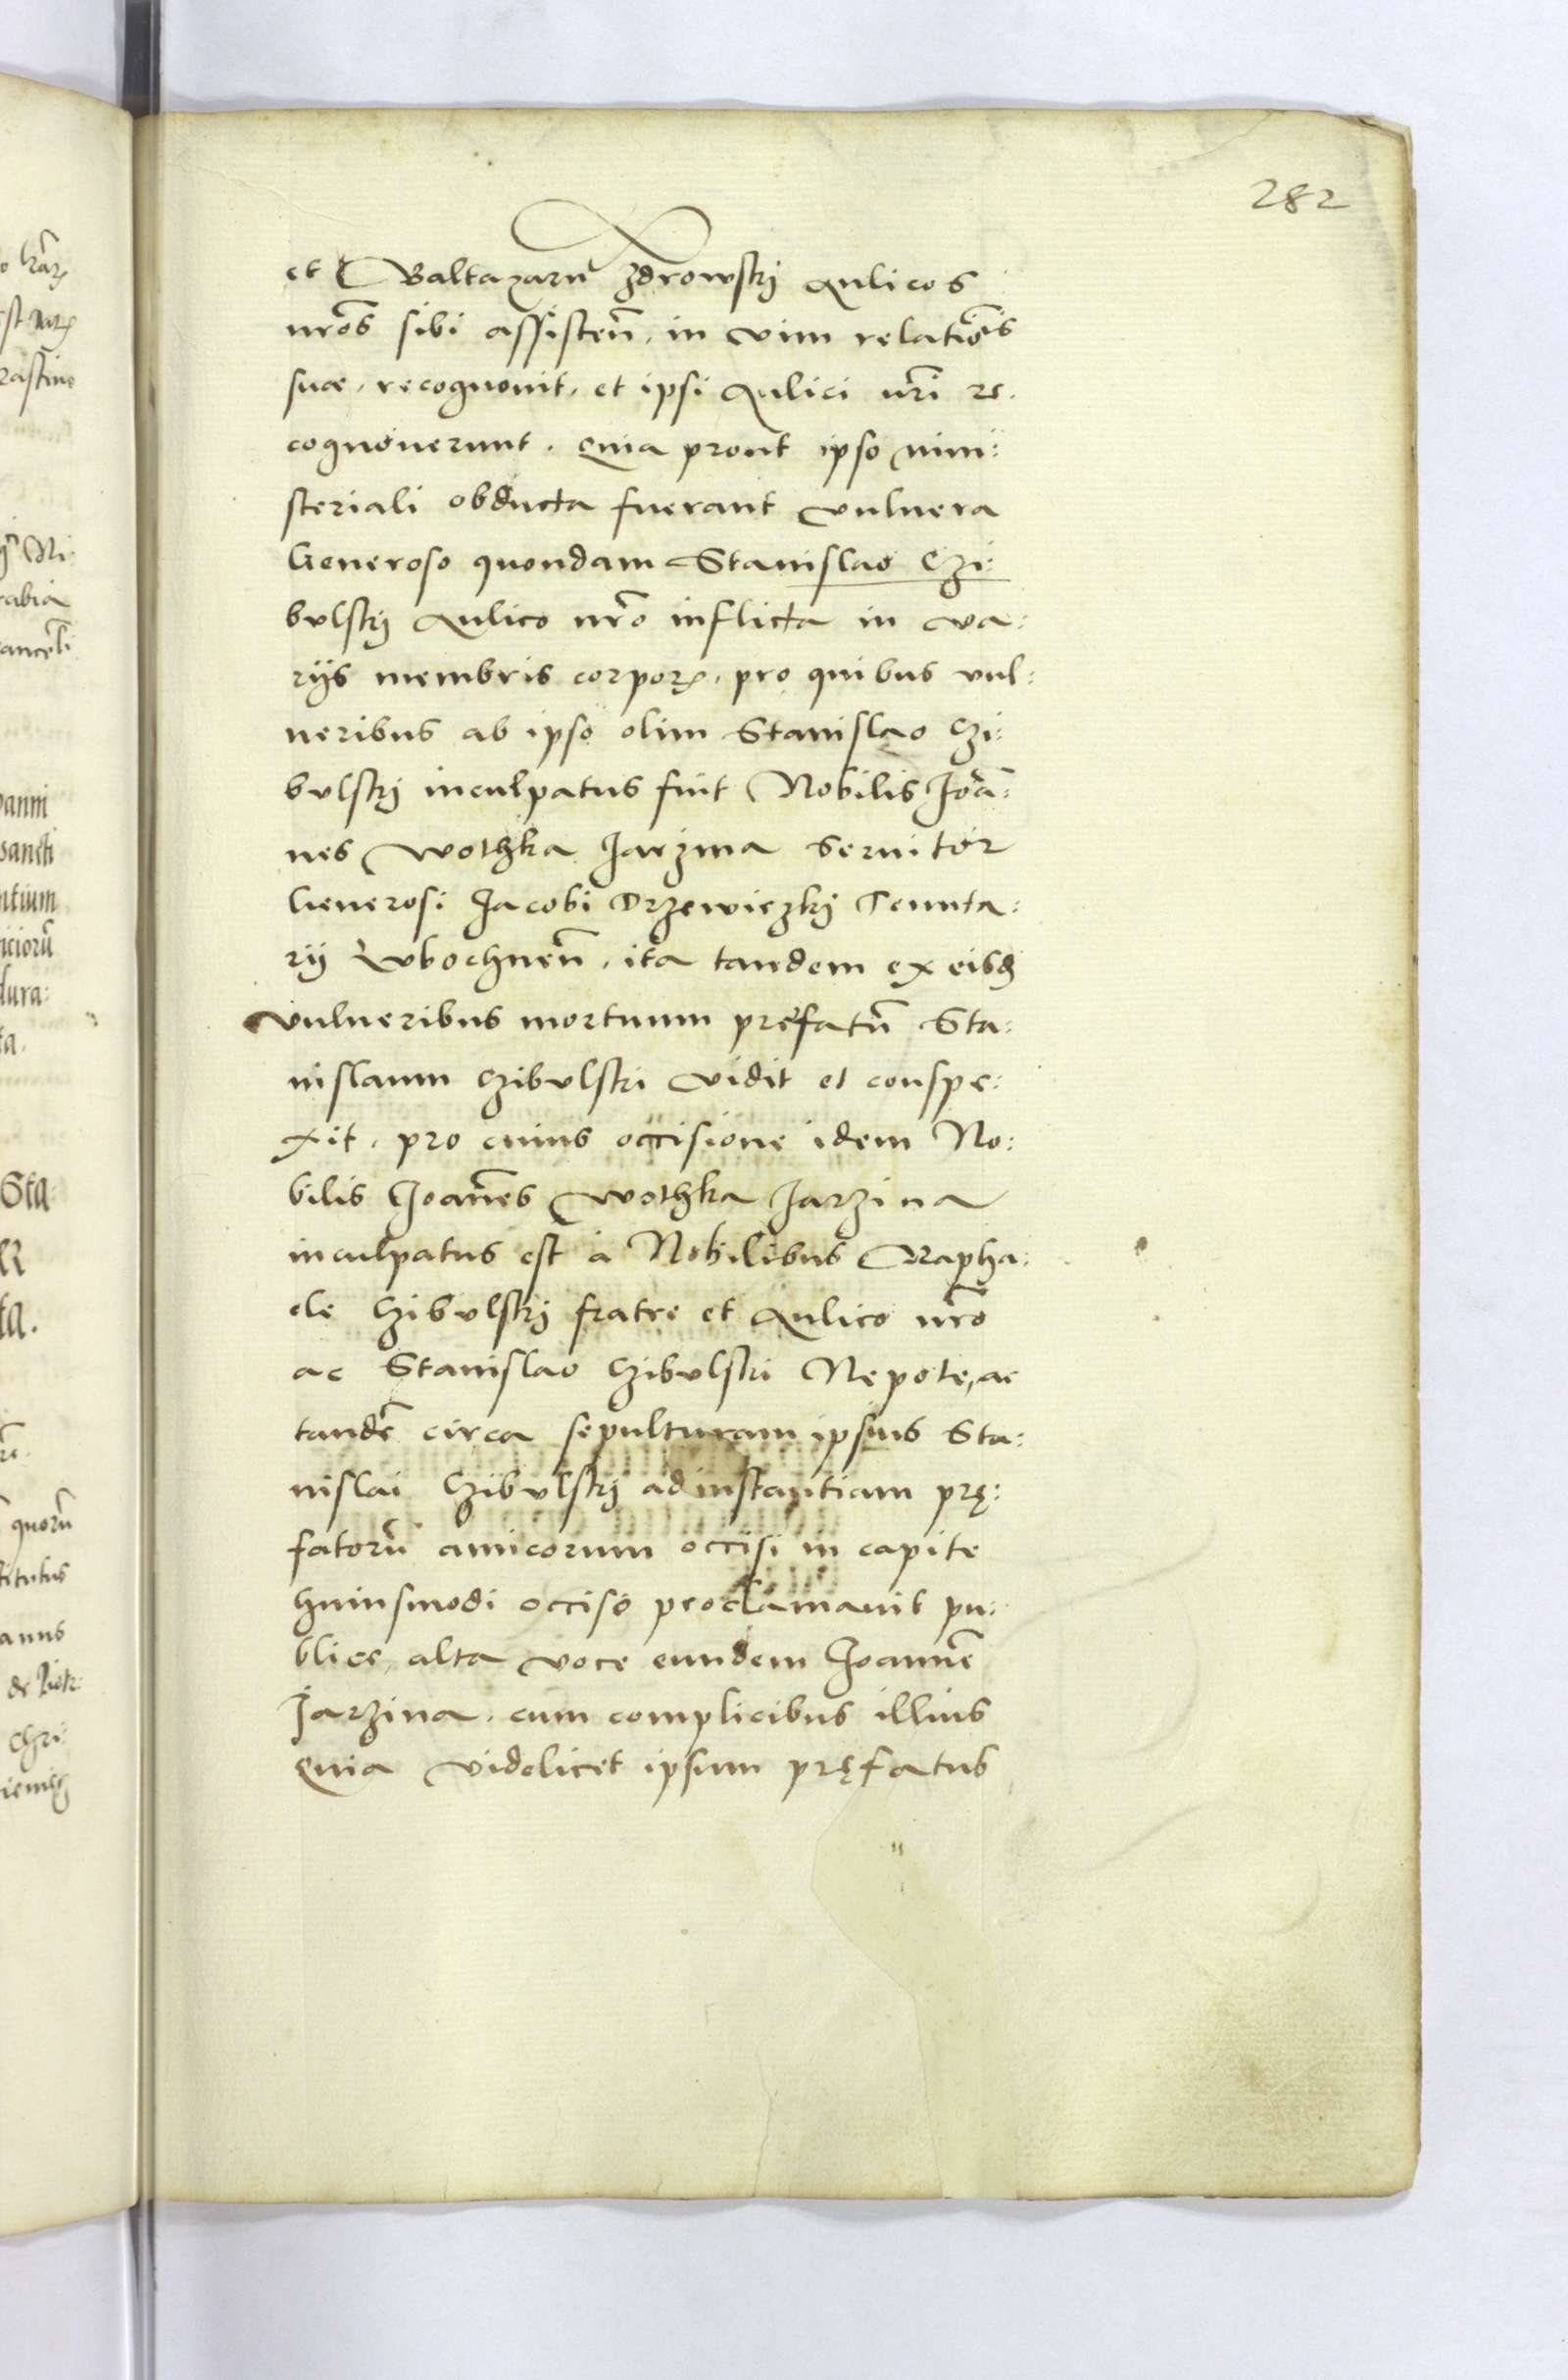 282
et Baltazarū Zdrowskij Aulicos
nr̄os sibi assisten̄. in vim relatiōis
suæ. recognouit. et ipsi Aulici nr̄i re.
cognouerunt. Quia prout ipso mini:
steriali obducta fuerant vulnera
Generoso quondam Stanislao Czi:
bulskij Aulico nr̄o inflicta in va:
rijs membris corporꝭ. pro quibus vul:
neribus ab ipso olim Stanislao Czi:
bulskij inculpatus fuit Nobilis Joā:
nes Wothka Jarzina seruitor
Generosi Jacobi Drzewiczkij Tenuta:
rij Vbochnen̄. ita tandem ex eisdē
vulneribus mortuum prefatū Sta:
nislaum Czibulski vidit et conspe:
xit. pro cuius occisione idem No:
bilis Joañes Wothka Jarzina
inculpatus est à Nobilibus Rapha:
ele Czibulskij fratre et Aulico nr̄o
ac Stanislao Czibulski Nepote, ac
tandē circa sepulturam ipsius Sta:
nislai Czibulskij ad instantiam prę:
fatorū amicorum occisi in capite
huiusmodi occiso proclamauit pu:
blice, alta voce eundem Joannē
Jarzina. cum complicibus illius
Quia videlicet ipsum pręfatus